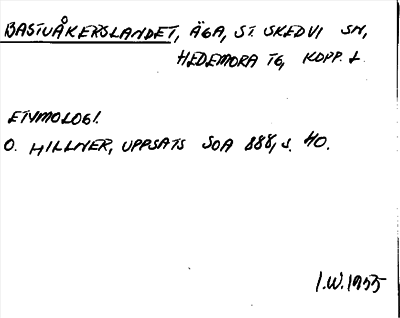 BASTUÅKERSLANDET, ÄGA, ST. SKEDVI SN,
HEDEMORA TG, KOPP. L.
ETYMOLOGI.
O. HILLNER, UPPSATS SOA 888, S. 40.
I.W. 1955